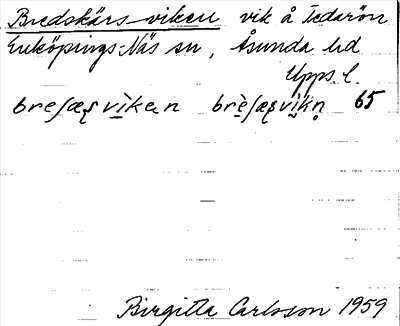 Bredskärs-viken vik å Tedarön
Enköpings-Näs sn, Åsunda hd
Upps. l.
breʃæʂvìkɐn brèʃæʂvìkn̥ 65
Birgitta Carlsson 1959